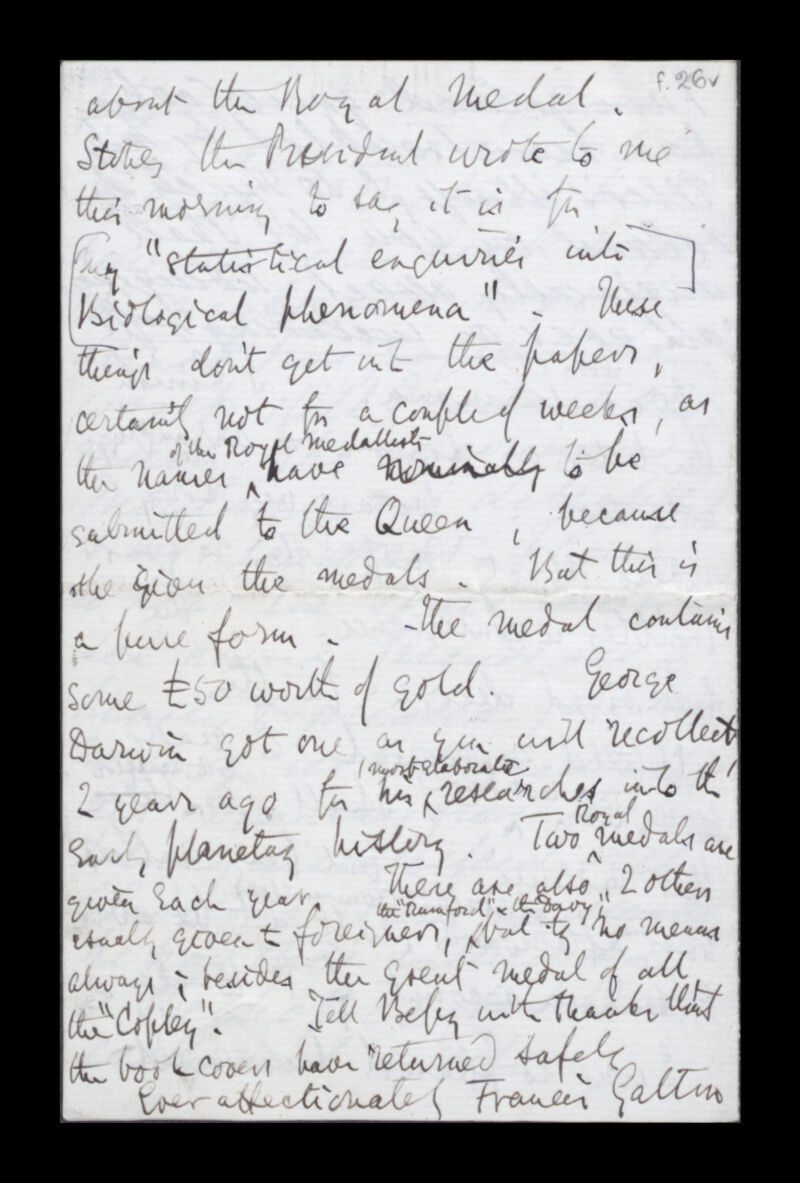 f. 26v
about the Royal Medal.
Stokes the President wrote to me
this morning to say it is for
my "statistical enquiries into
Biological phenomena". These
things don't get into the papers,
certainly not for a couple of weeks, as
of the Royal Medallists
the names have nominally to be
submitted to the Queen, because
she gives the medals. But this is
a pure form. The medal contains
some £50 worth of gold. George
Darwin got one, as you will recollect
most elaborate
2 years ago for his researches into the
Royal
early planetary history. Two medals are
given each year. There are also 2 others
the "Rumford" & the "Davy"
usually given to foreigners, but by no means
always; besides the great medal of all
the "Copley". Tell Bessy with thanks that
the book covers have returned safely
Ever affectionately Francis Galton